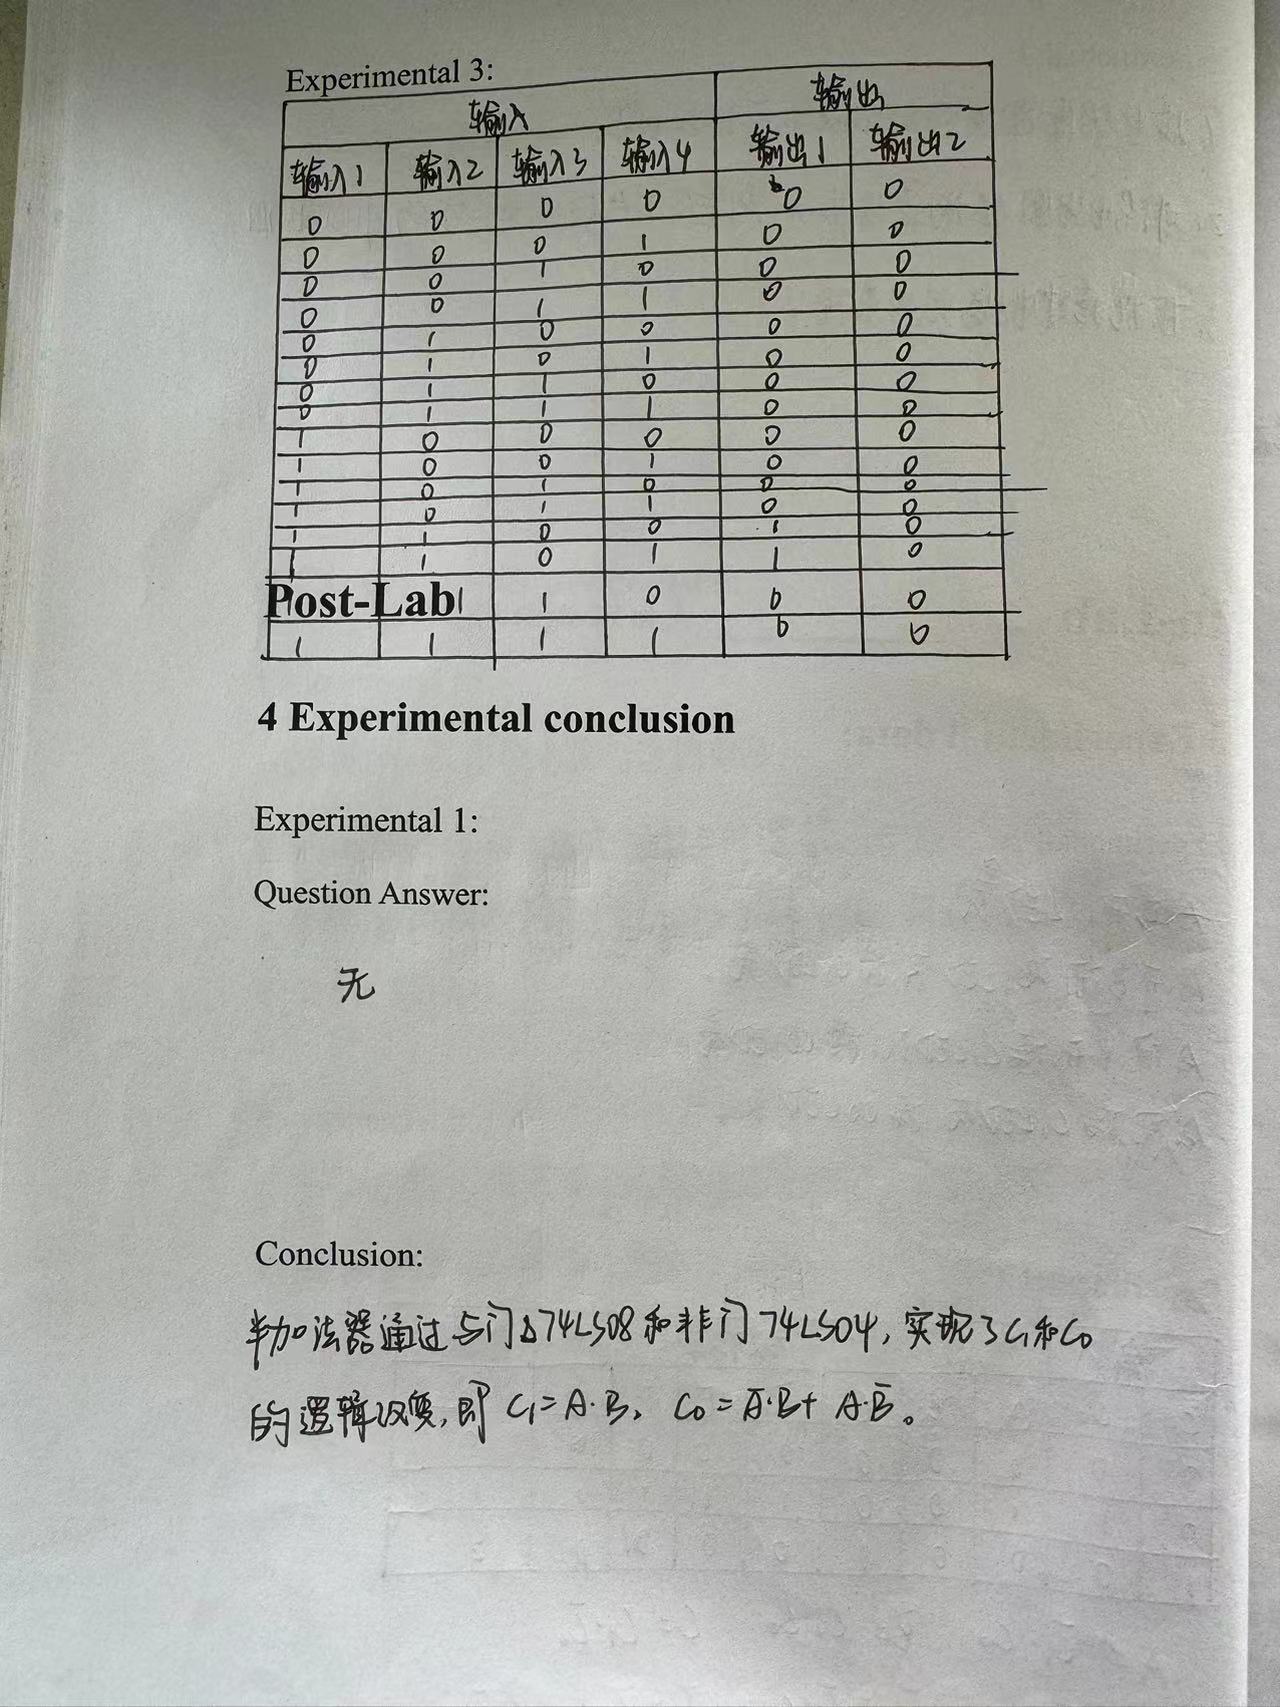 Experimental 3:
输入 输出
输入1 输入2 输入3 输入4 输出1 输出2
0 0 0 0 0 0
0 0 0 1 0 0
0 0 1 0 0 0
0 0 1 1 0 0
0 1 0 0 0 0
0 1 0 1 0 0
0 1 1 0 0 0
0 1 1 1 0 0
1 0 0 0 0 0
1 0 0 1 0 0
1 0 1 0 0 0
1 0 1 1 0 0
1 1 0 0 1 0
1 1 0 1 1 0
Post-Lab
1 1 1 0 0 0
1 1 1 1 0 0
4 Experimental conclusion
Experimental 1:
Question Answer:
无
Conclusion:
半加法器通过与门74LS08和非门74LS04,实现了C₁和C₀
的逻辑,即 C₁=A·B, C₀=A̅·B+A·B̅。